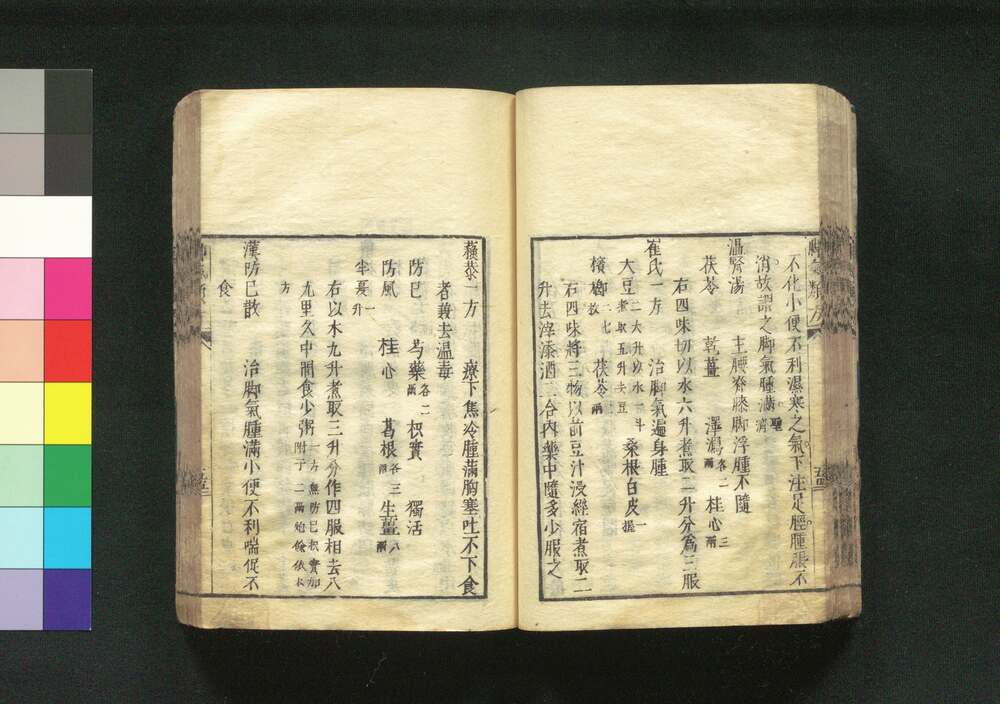 不化小便不利濕寒之氣下注足脛腫脹不
消故謂之脚氣腫滿聖濟
温腎湯　主腰脊膝脚浮腫不隨
茯苓　乾薑　澤瀉各二兩　桂心三兩
右四味切以水六升煮取二升分爲三服
崔氏一方　治脚氣遍身腫
大豆二大升以水一斗煮取五升去豆　桑根白皮一握
檳榔二七枚　茯苓二兩
右四味將三物以前豆汁浸經宿煮取二
升去滓添酒二合內藥中隨多少服之
蘇恭一方　療下焦冷腫滿胸塞吐不下食
者兼去温毒
防已　芍藥各二兩　枳實　獨活
防風　桂心　葛根各三兩　生薑八兩
半夏一升
右以水九升煮取三升分作四服相去八
九里久中間食少粥一方無防已枳實加附子二兩炮餘依本方
漢防已散　治脚氣腫滿小便不利喘促不
食